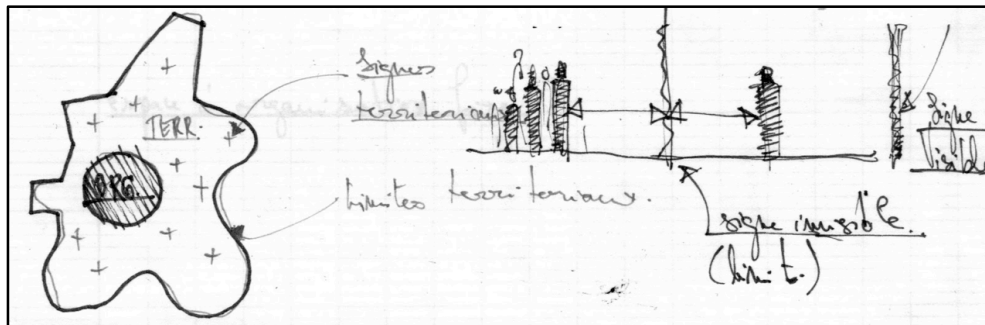 TERR.
ORG.
Signes
territoriaux
limites territoriaux.
signe invisible.
(limit.)
Signe